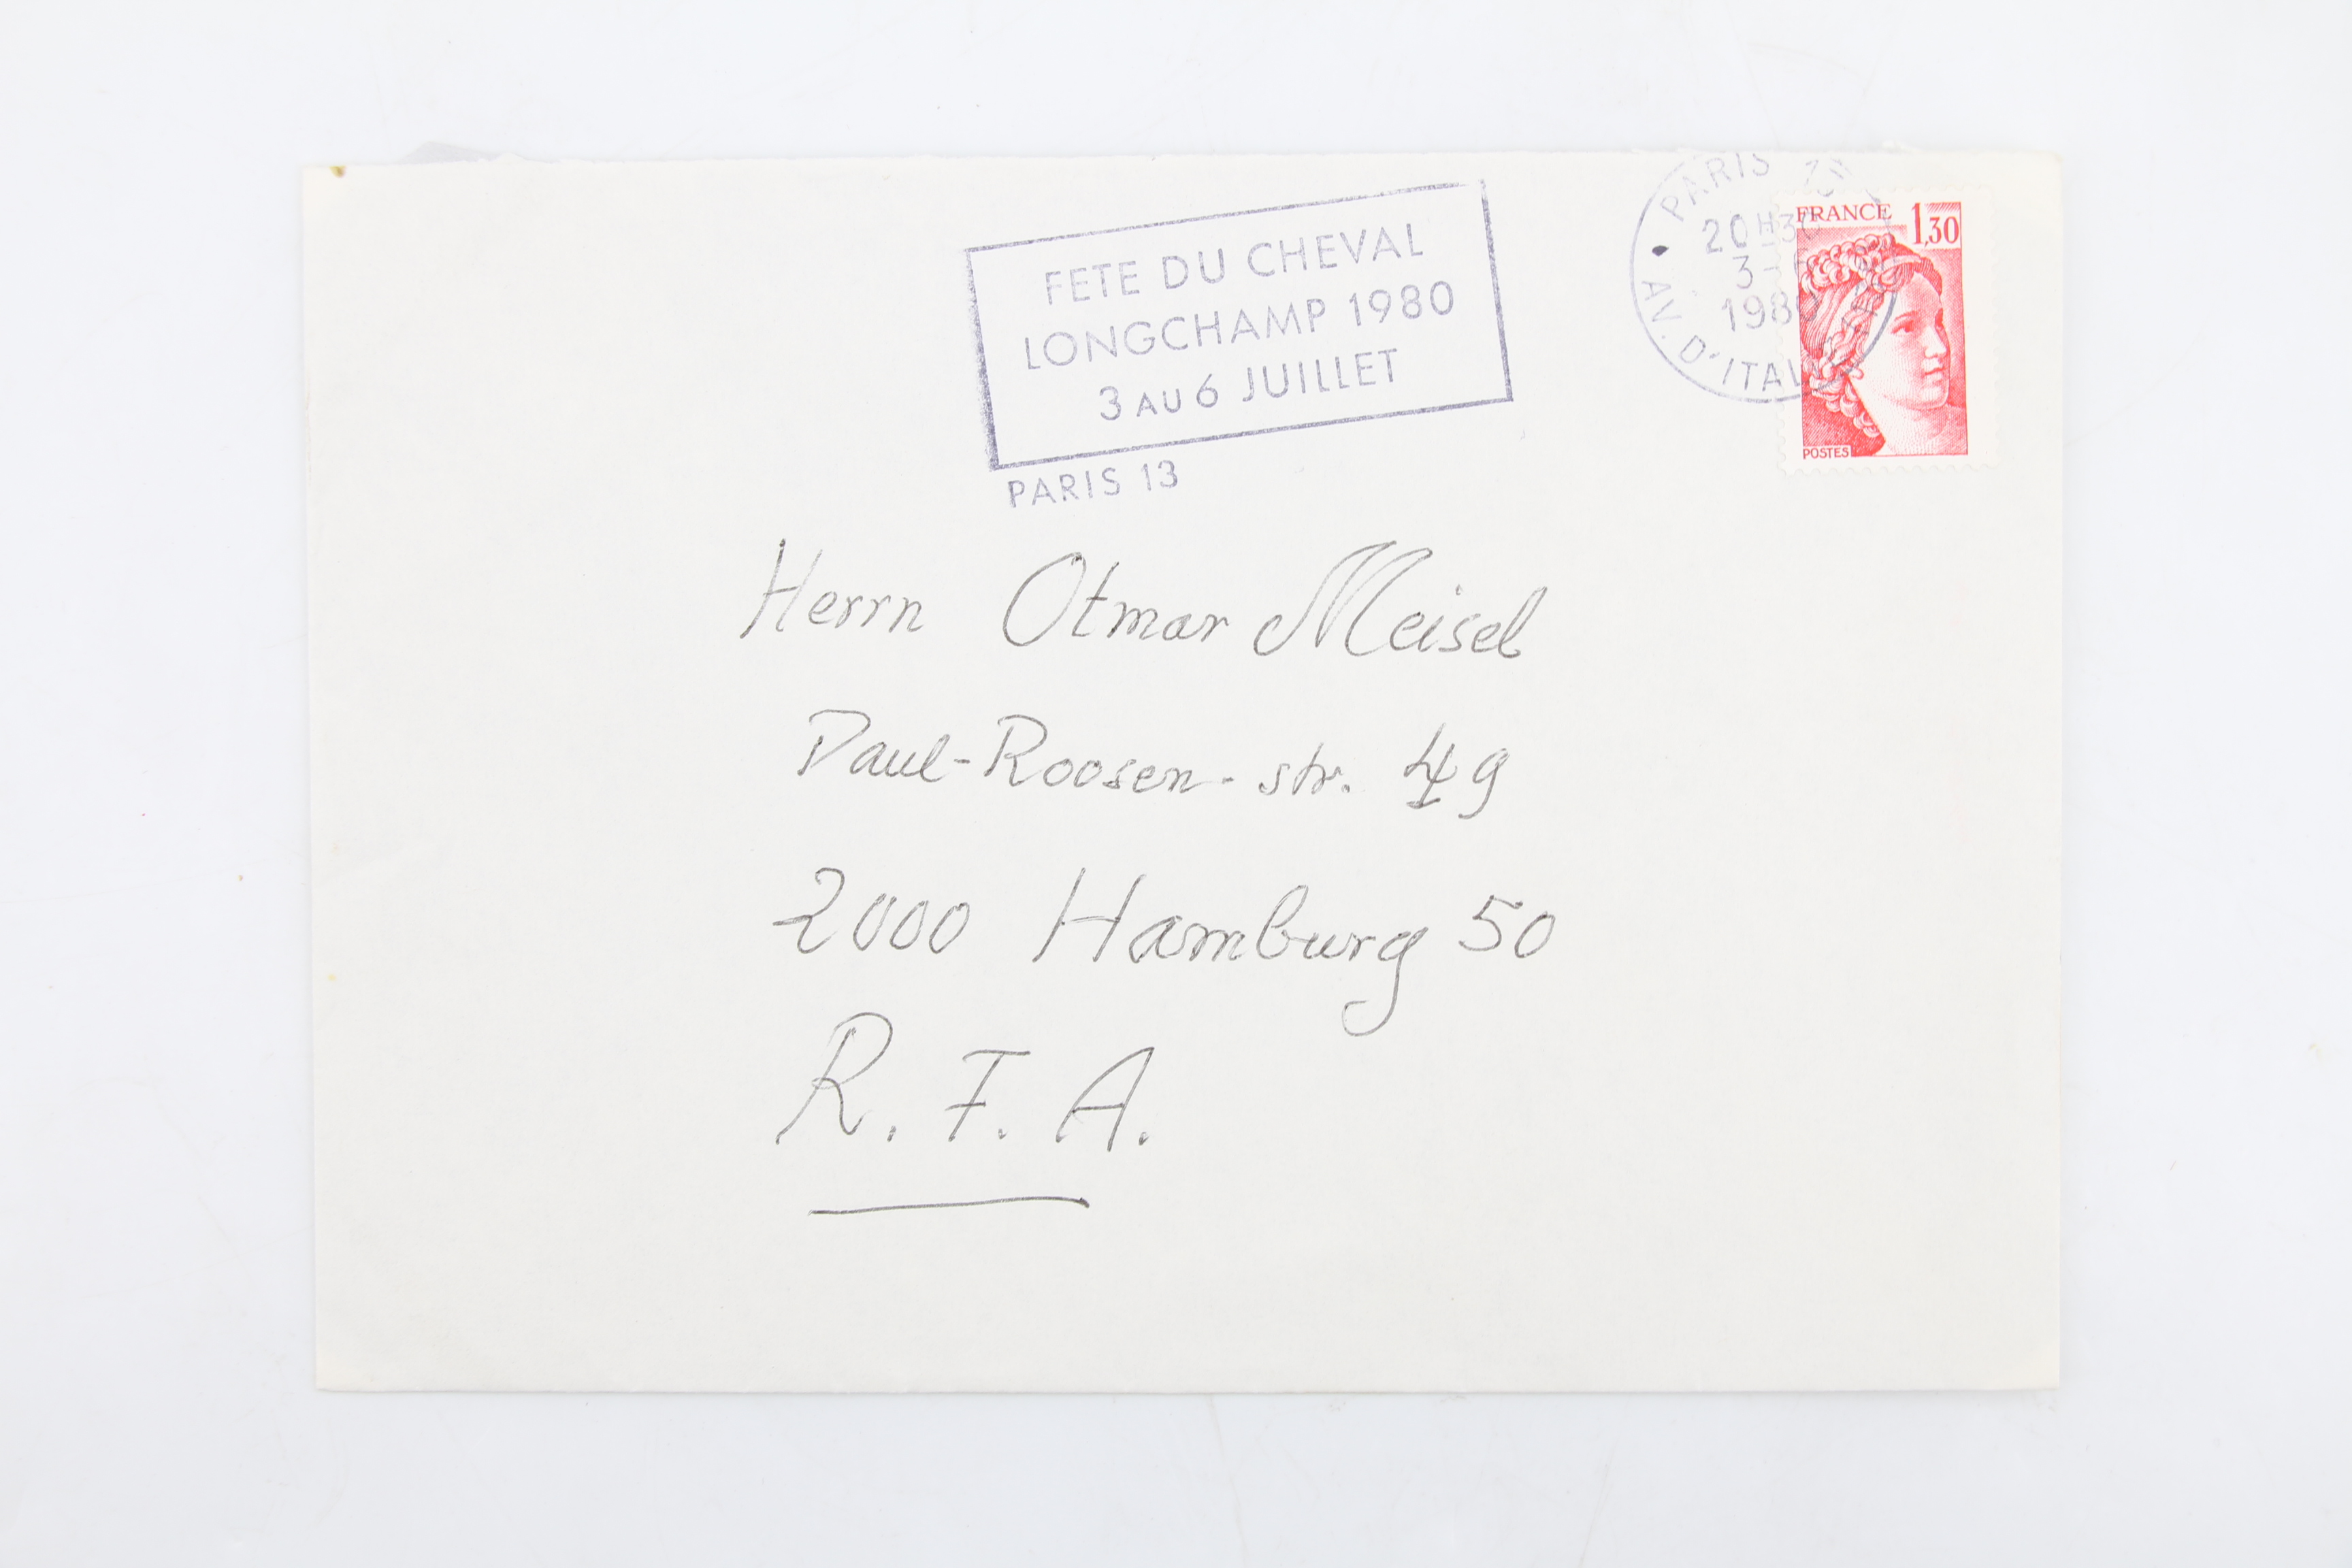 FETE DU CHEVAL
LONGCHAMP 1980
3 AU 6 JUILLET
PARIS 13
PARIS 13
20H30
3-
1980
AV. D'ITALIE
FRANCE 1,30
POSTES
Herrn Otmar Meisel
Paul-Roosen-str. 49
2000 Hamburg 50
R. F. A.